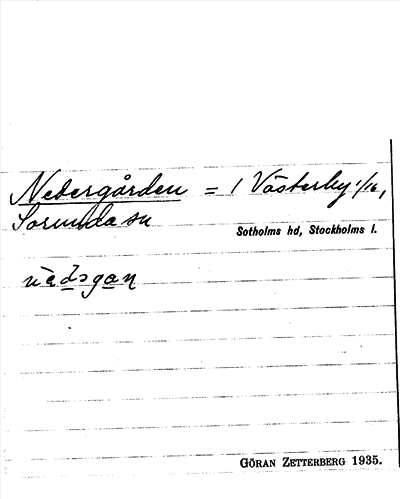 Nedergården = 1 Västerby 1/16,
Sorunda sn
Sotholms hd, Stockholms l.
nèdsgan
GÖRAN ZETTERBERG 1935.